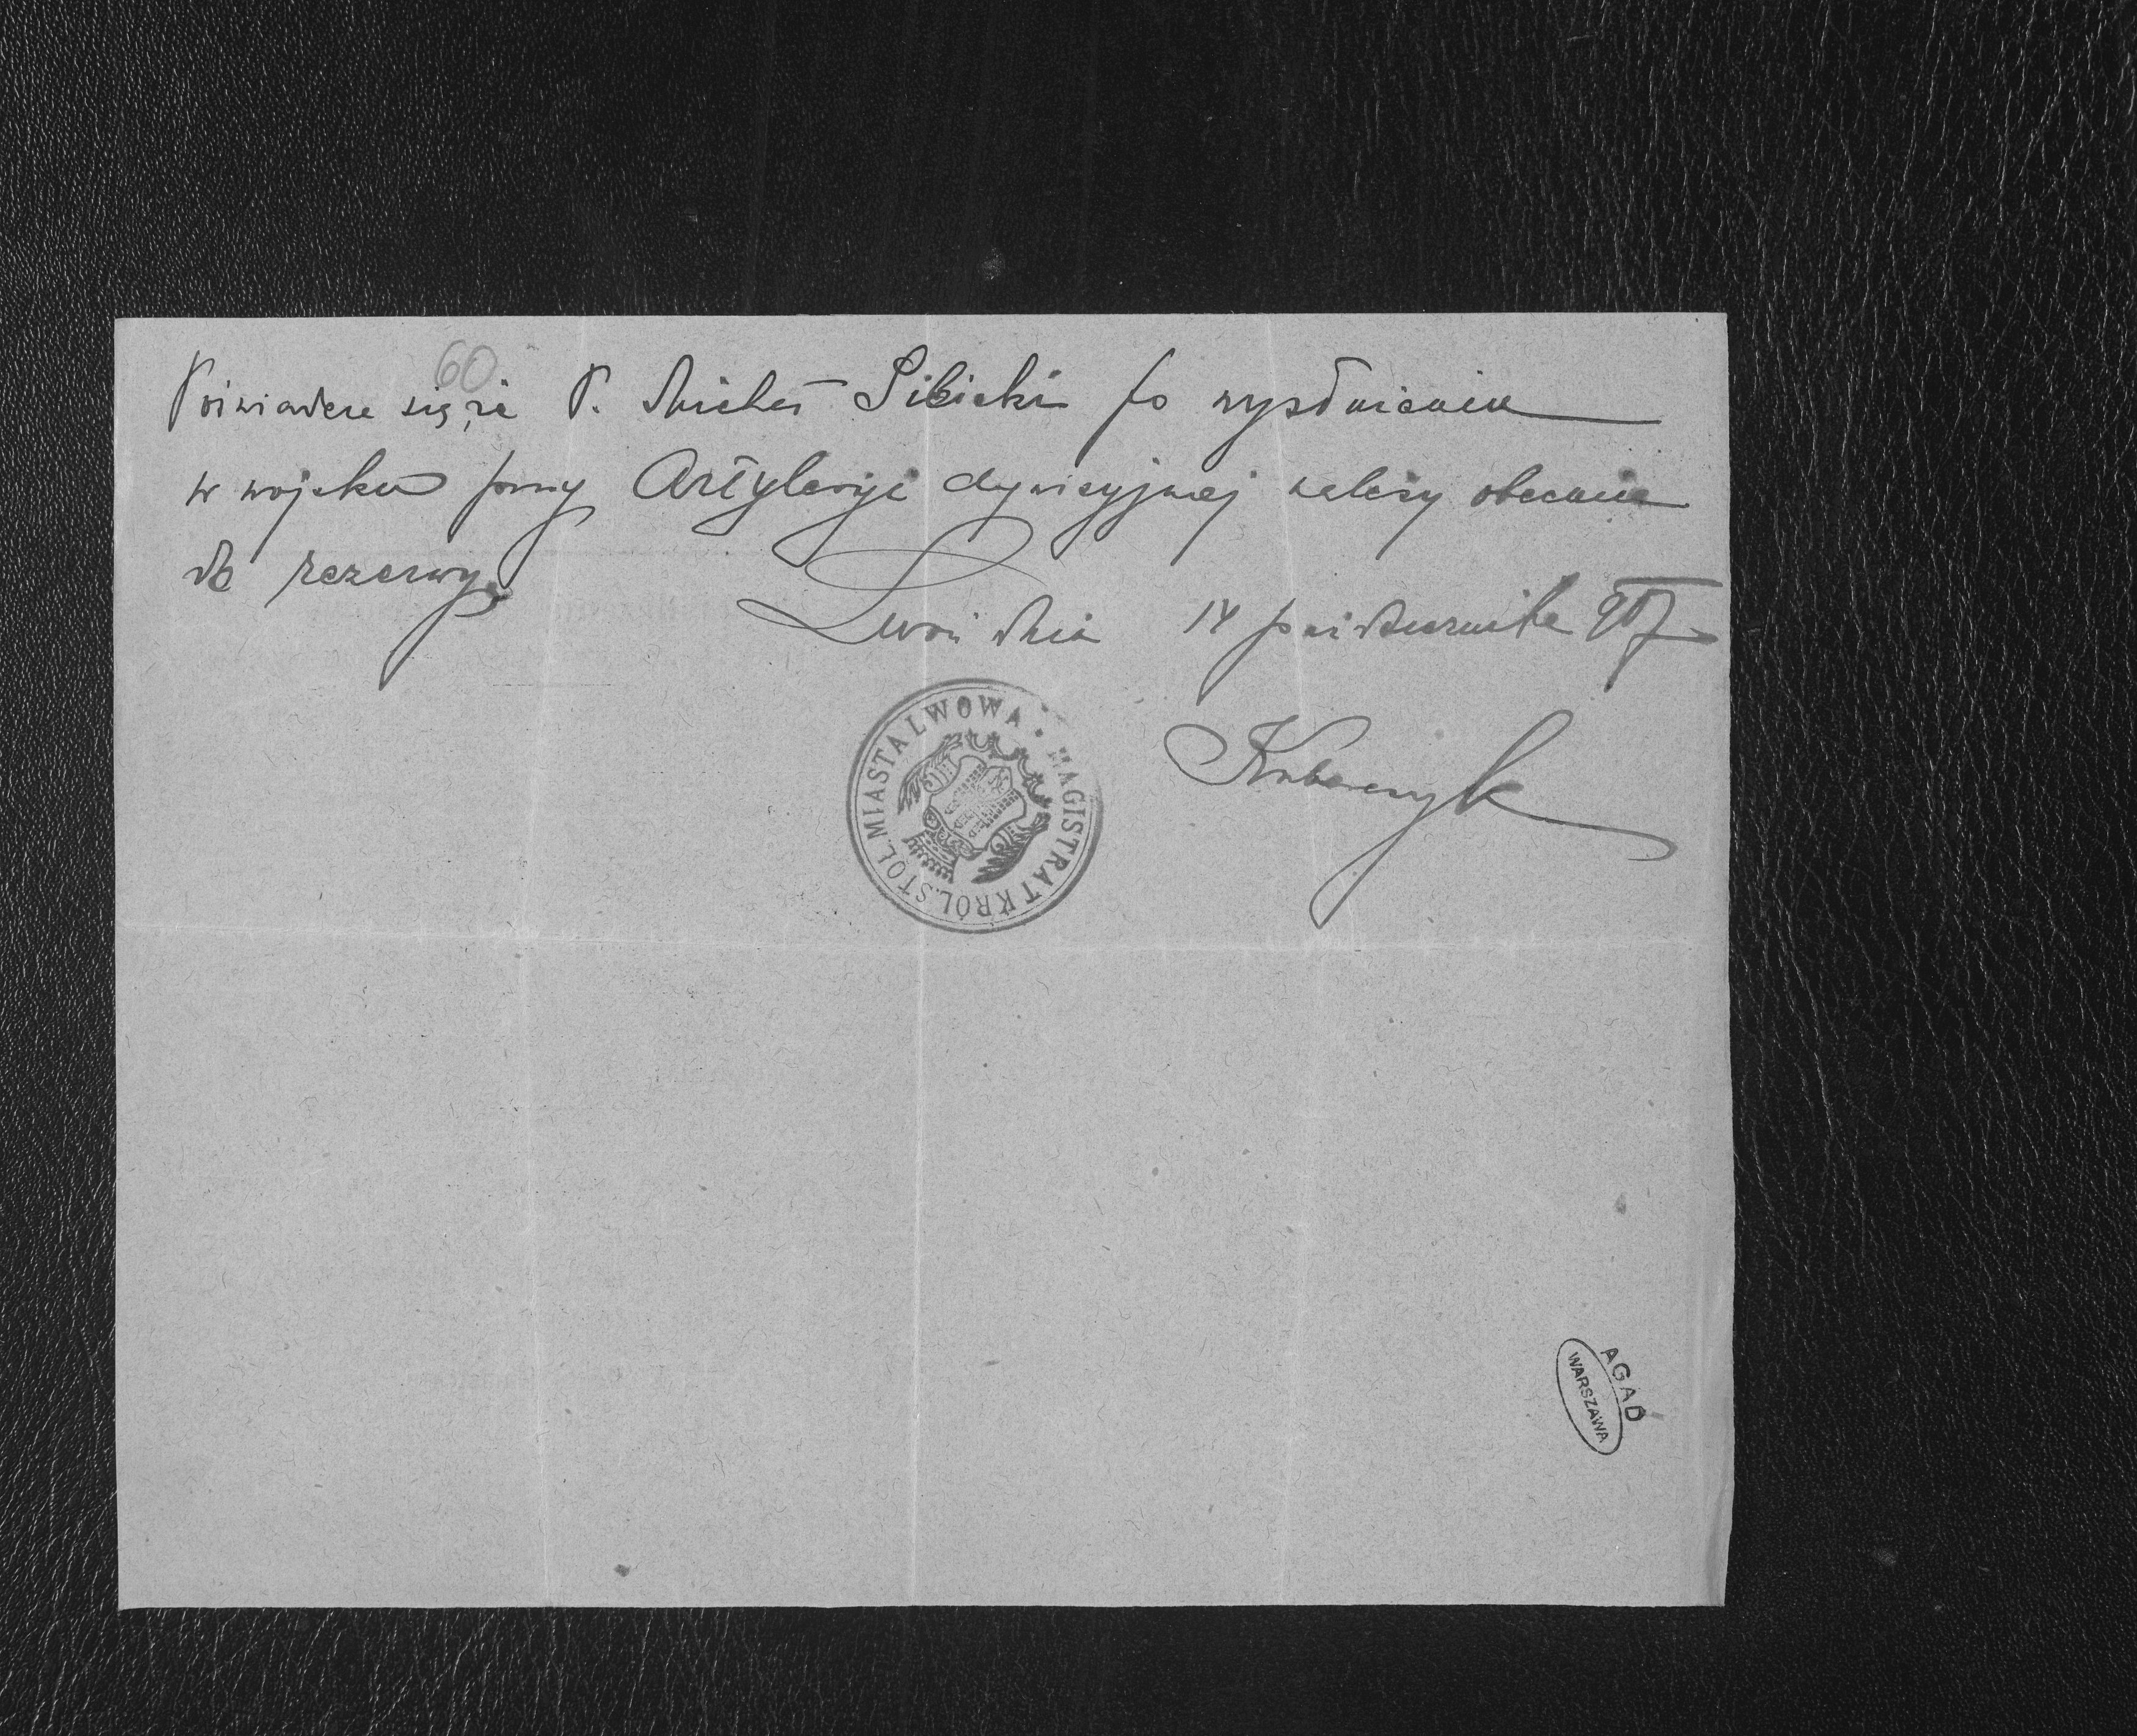 60
Poświadcza się, że P. Michał Sibicki po wysłużeniu
w wojsku przy Artyleryi dywizyjnej należy obecnie
do rezerwy.
Lwów dnia 14 października 907
MAGISTRAT KRÓL. STOŁ. MIASTA LWOWA
AGAD
WARSZAWA